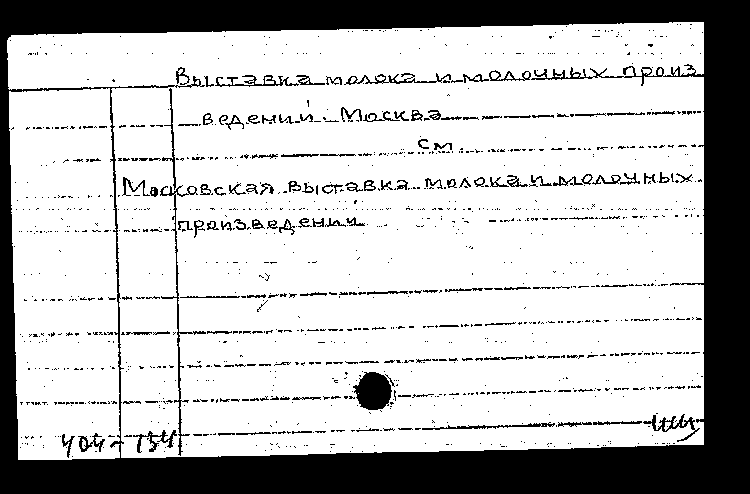 Выставка молока и молочных произ
ведений. Москва
см
Московская выставка молока и молочных
произведений
404-154